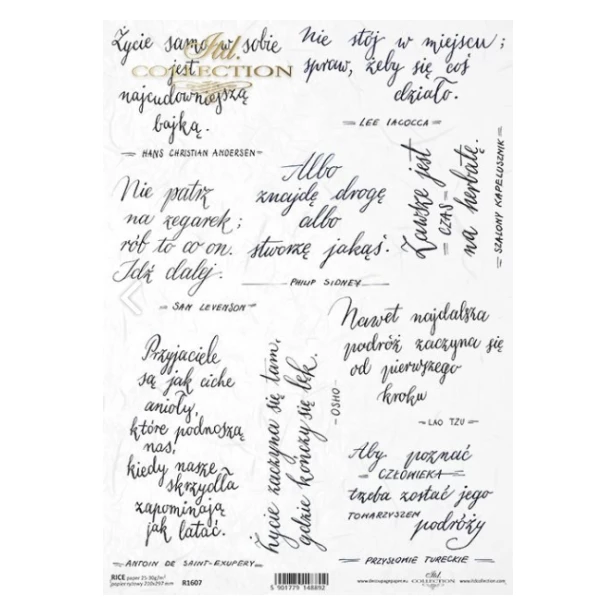 Życie samo w sobie
jest
najcudowniejszą
bajką.
HANS CHRISTIAN ANDERSEN
Itd.
COLLECTION
Nie stój w miejscu;
spraw, żeby się coś
działo.
LEE IACOCCA
Nie patrz
na zegarek;
rób to co on.
Idź dalej.
SAN LEVENSON
Albo
znajdę drogę
albo
stworzę jakąś.
PHILIP SIDNEY
Zawsze jest
CZAS
na herbatę.
SZALONY KAPELUSZNIK
Przyjaciele
są jak ciche
anioły,
które podnoszą
nas,
kiedy nasze
skrzydła
zapominają
jak latać.
ANTOIN DE SAINT-EXUPERY
Życie zaczyna się tam,
gdzie kończy się lęk.
OSHO
Nawet najdalsza
podróż zaczyna się
od pierwszego
kroku
LAO TZU
Aby poznać
CZŁOWIEKA
trzeba zostać jego
TOWARZYSZEM
podróży
PRZYSŁOWIE TURECKIE
RICE paper 25-30g/m²
papier ryżowy 210x297 mm
R1607
5 901779 148892
www.decoupagepapers.eu
Itd.
COLLECTION
www.itdcollection.com